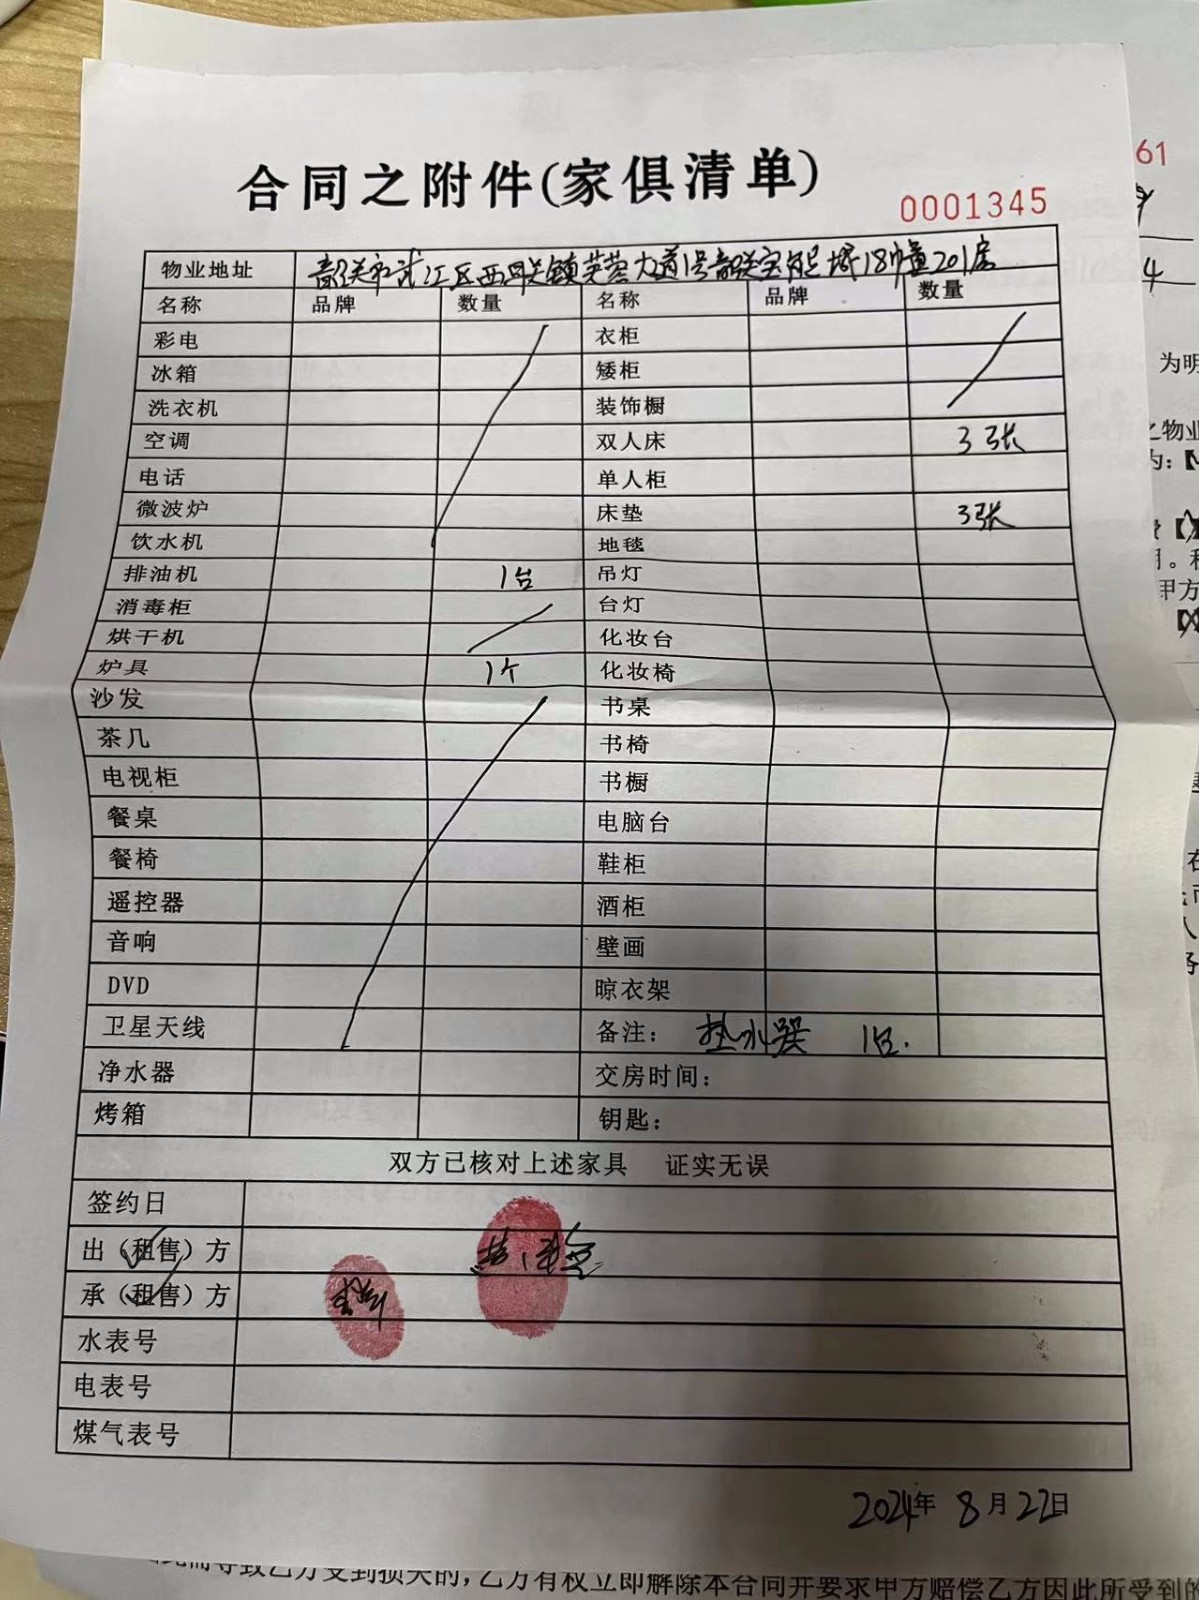 合同之附件(家俱清单)
0001345
物业地址 韶关市武江区西联镇芙蓉大道1号韶关宝能城18幢201房
名称 品牌 数量 名称 品牌 数量
彩电 衣柜
冰箱 矮柜
洗衣机 装饰橱
空调 双人床 3张
电话 单人柜
微波炉 床垫 3张
饮水机 地毯
排油机 1台 吊灯
消毒柜 台灯
烘干机 化妆台
炉具 1个 化妆椅
沙发 书桌
茶几 书椅
电视柜 书橱
餐桌 电脑台
餐椅 鞋柜
遥控器 酒柜
音响 壁画
DVD 晾衣架
卫星天线 备注: 热水器 1台.
净水器 交房时间:
烤箱 钥匙:
双方已核对上述家具 证实无误
签约日
出(租售)方
承(租售)方
水表号
电表号
煤气表号
2024年 8月22日
61
4
为明
之物业
为:【
甲方
而导致乙方受到损失的,乙方有权立即解除本合同并要求甲方赔偿乙方因此所受到的